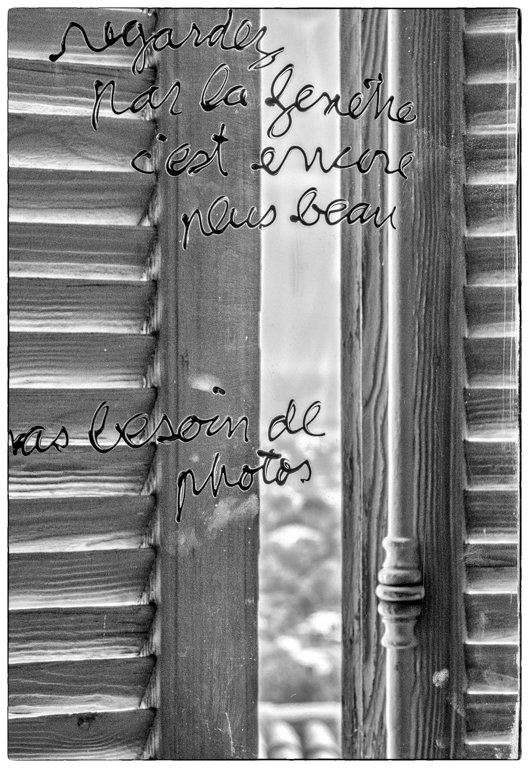 regardez
par la fenêtre
c'est encore
plus beau
pas besoin de
photos